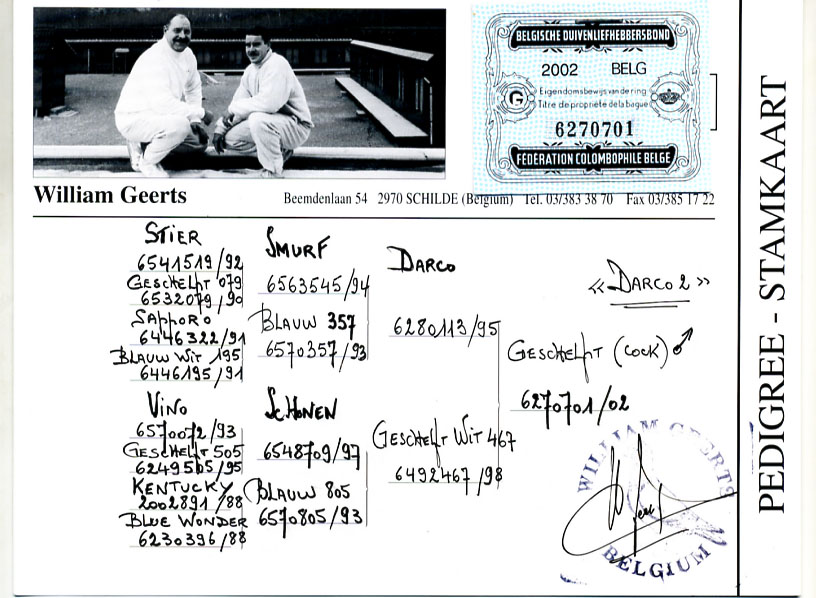 BELGISCHE DUIVENLIEFHEBBERSBOND
2002 BELG
G
Eigendomsbewijs van de ring
Titre de propriété de la bague
6270701
FÉDÉRATION COLOMBOPHILE BELGE
William Geerts
Beemdenlaan 54 2970 SCHILDE (Belgium) Tel. 03/383 38 70 Fax 03/385 17 22
STIER
6541519/92
GESCHELPT 079
6532079/90
SAPPORO
6446322/91
BLAUW WIT 195
6446195/91
VINO
6570072/93
GESCHELPT 505
6249505/95
KENTUCKY
2002891/88
BLUE WONDER
6230396/88
SMURF
6563545/94
BLAUW 357
6570357/93
SCHONEN
6548709/97
BLAUW 805
6570805/93
DARCO
6280113/95
GESCHELPT WIT 467
6492467/98
« DARCO 2 »
GESCHELPT (COCK) ♂
6270701/02
WILLIAM GEERTS
BELGIUM
PEDIGREE - STAMKAART